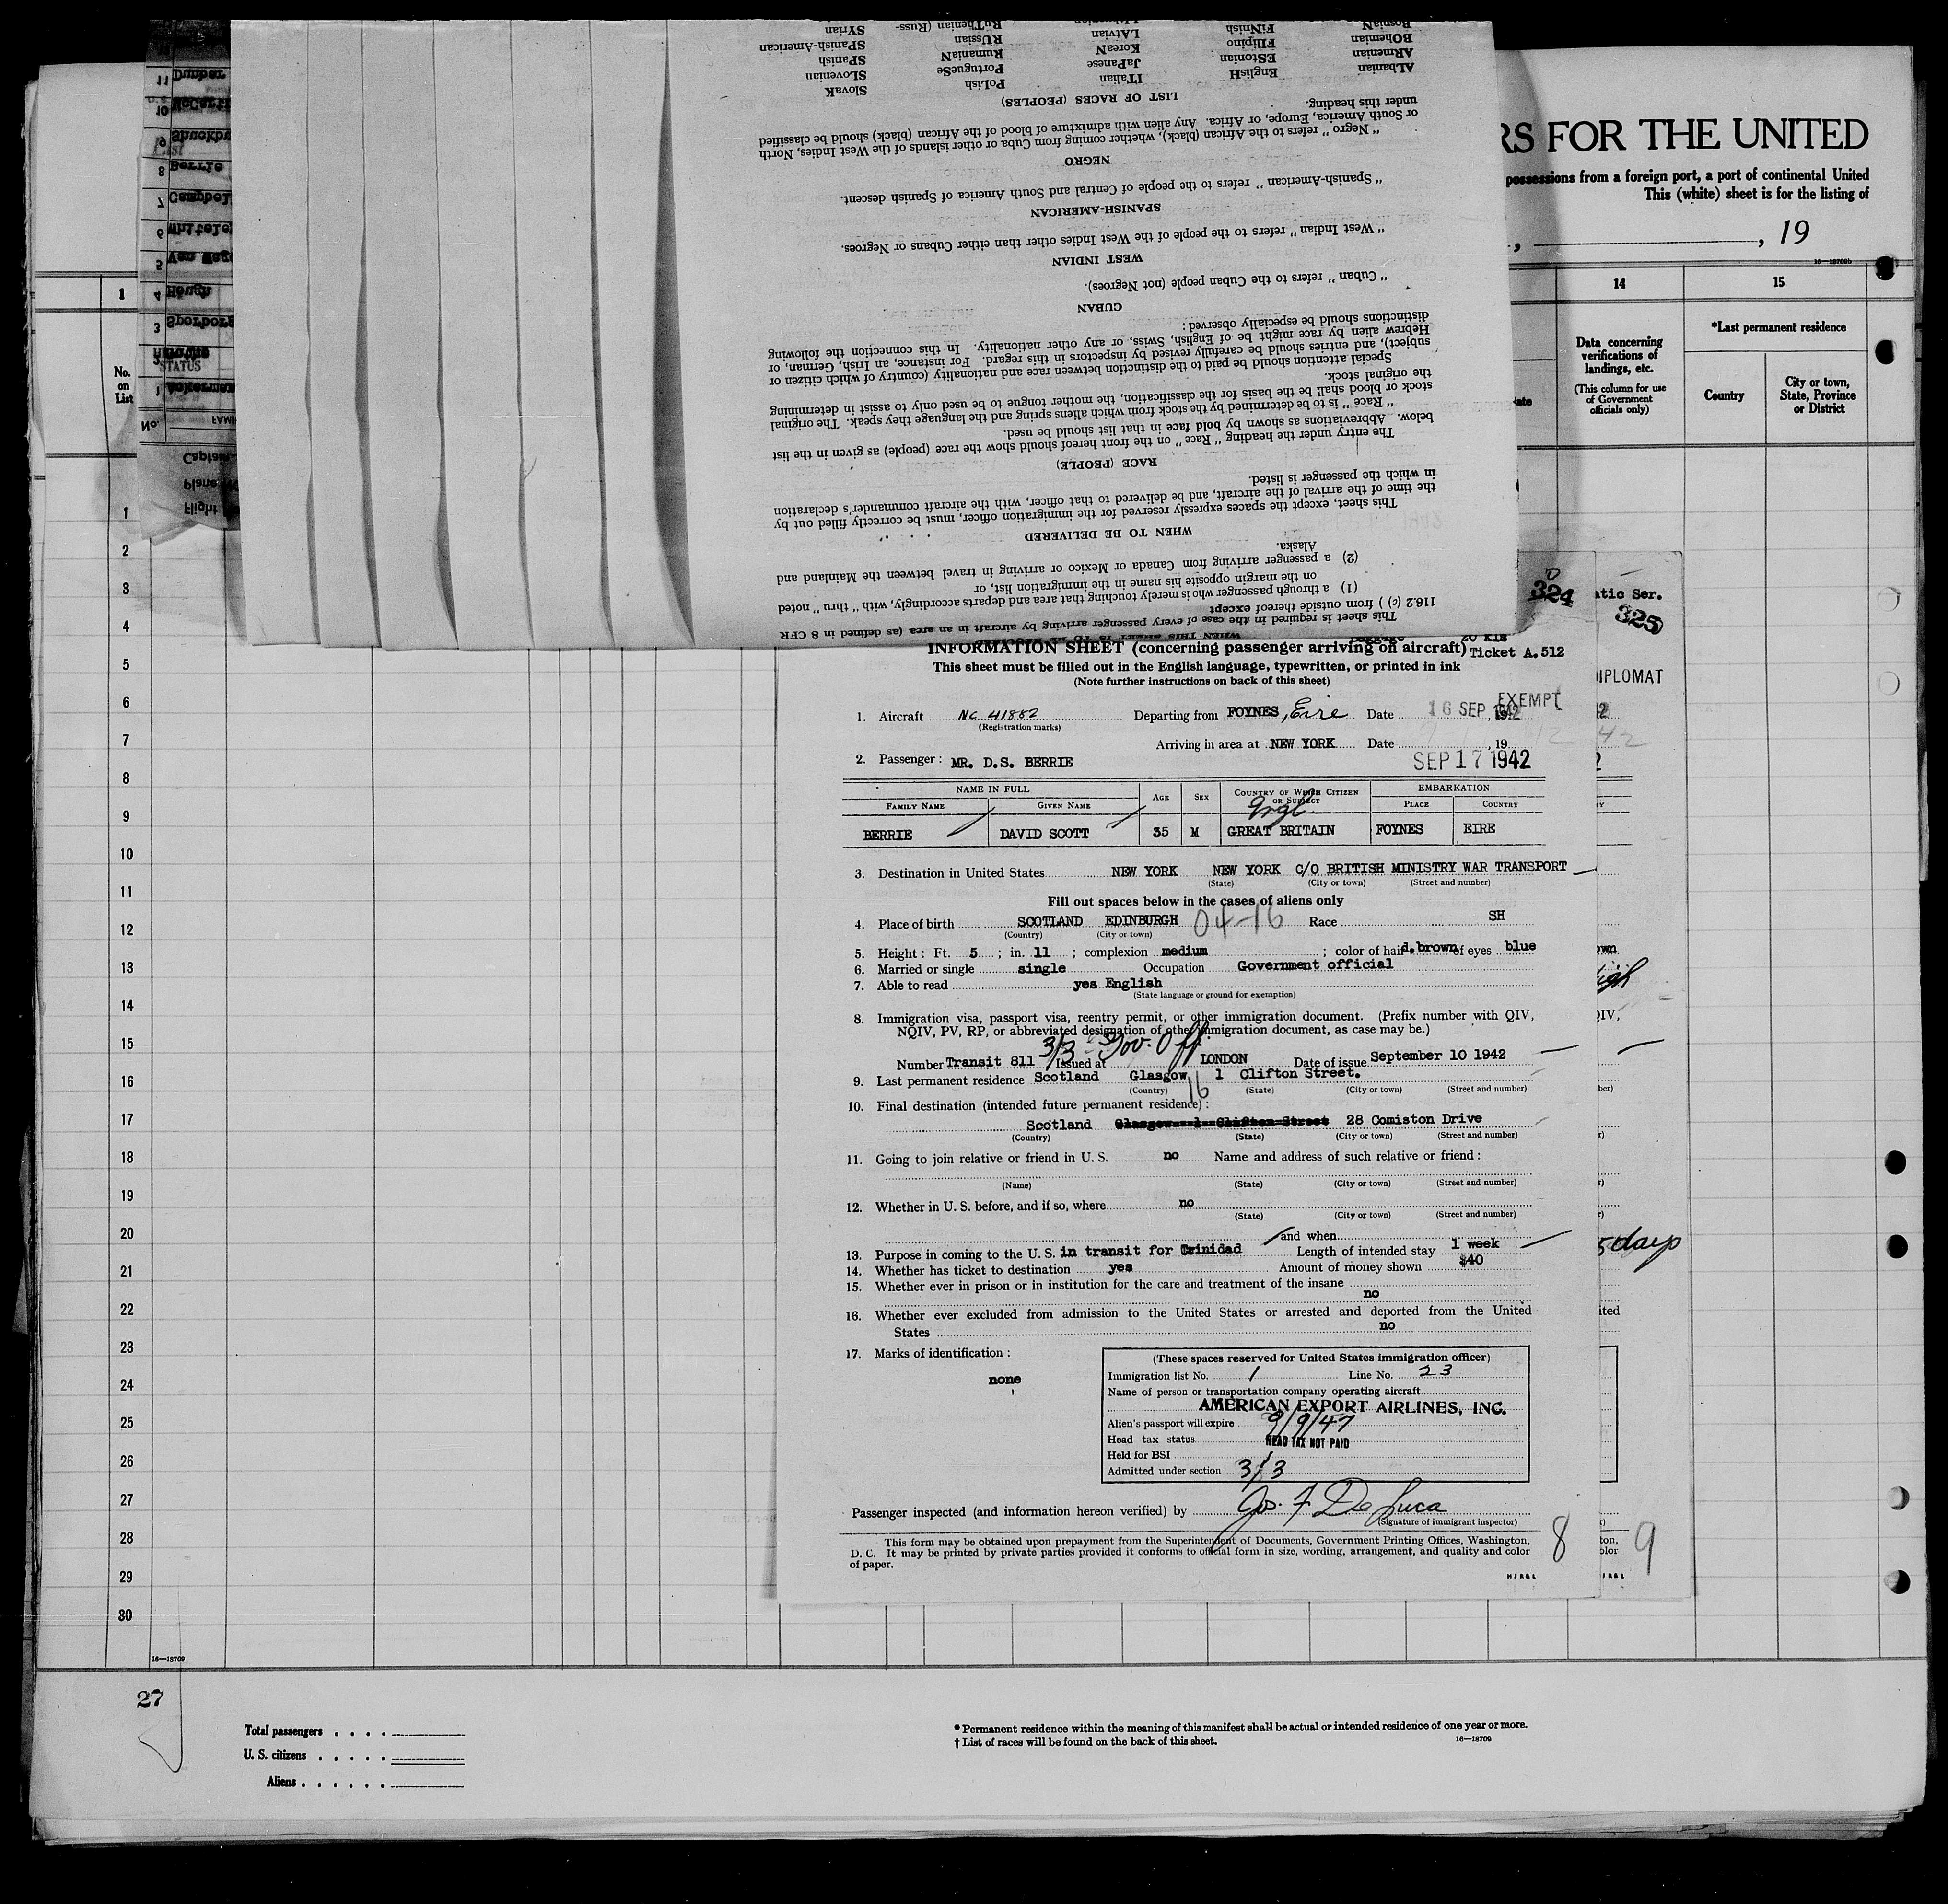 RS FOR THE UNITED
possessions from a foreign port, a port of continental United
This (white) sheet is for the listing of
, 19
16—18709b
1
14
15
No. on List
Data concerning verifications of landings, etc.
(This column for use of Government officials only)
*Last permanent residence
Country
City or town, State, Province or District
11 Dunbar
10
9 Shuckbu
8 Berrie
7 Campbel
6 Whitele
5 Van Wag
4 Hough
3 Sporborg
2
STATUS
1 Ackerman
No.
FAMI
Captain
Plane
Flight
This sheet is required in the case of every passenger arriving by aircraft in an area (as defined in 8 CFR
116.2 (c) ) from outside thereof except
(1) a through passenger who is merely touching that area and departs accordingly, with "thru" noted
on the margin opposite his name in the immigration list, or
(2) a passenger arriving from Canada or Mexico or arriving in travel between the Mainland and
Alaska.
WHEN TO BE DELIVERED
This sheet, except the spaces expressly reserved for the immigration officer, must be correctly filled out by
the time of the arrival of the aircraft, and be delivered to that officer, with the aircraft commander's declaration
in which the passenger is listed.
RACE (PEOPLE)
The entry under the heading "Race" on the front hereof should show the race (people) as given in the list
below. Abbreviations as shown by bold face in that list should be used.
"Race" is to be determined by the stock from which aliens spring and the language they speak. The original
stock or blood shall be the basis for the classification, the mother tongue to be used only to assist in determining
the original stock.
Special attention should be paid to the distinction between race and nationality (country of which citizen or
subject), and entries should be carefully revised by inspectors in this regard. For instance, an Irish, German, or
Hebrew alien by race might be of English, Swiss, or any other nationality. In this connection the following
distinctions should be especially observed:
CUBAN
"Cuban" refers to the Cuban people (not Negroes).
WEST INDIAN
"West Indian" refers to the people of the West Indies other than either Cubans or Negroes.
SPANISH-AMERICAN
"Spanish-American" refers to the people of Central and South America of Spanish descent.
NEGRO
"Negro" refers to the African (black), whether coming from Cuba or other islands of the West Indies, North
or South America, Europe, or Africa. Any alien with admixture of blood of the African (black) should be classified
under this heading.
LIST OF RACES (PEOPLES)
ALbanian EnglisH ITalian PoLish SlovaK
ARMenian EStonian JaPanese PortugueSe SLOvenian
BOhemian FIlipino KoreaN RumaniaN SPanish
BosniaN FiNnish LAtvian RUssian SPanish-American
RuThenian (Russ- SYrian
324
atic Ser.
325
Baggage 20 Kls
Ticket A.512
IPLOMAT
INFORMATION SHEET (concerning passenger arriving on aircraft)
This sheet must be filled out in the English language, typewritten, or printed in ink
(Note further instructions on back of this sheet)
EXEMPT
1. Aircraft NC 41882 Departing from FOYNES, Eire Date 16 SEP 1942
(Registration marks)
Arriving in area at NEW YORK Date , 19
2. Passenger: MR. D.S. BERRIE SEP 17 1942
NAME IN FULL AGE SEX COUNTRY OF WHICH CITIZEN OR SUBJECT EMBARKATION
FAMILY NAME GIVEN NAME PLACE COUNTRY
Engl
BERRIE DAVID SCOTT 35 M GREAT BRITAIN FOYNES EIRE
3. Destination in United States NEW YORK NEW YORK C/O BRITISH MINISTRY WAR TRANSPORT
(State) (City or town) (Street and number)
Fill out spaces below in the cases of aliens only
4. Place of birth SCOTLAND EDINBURGH 04-16 Race SH
(Country) (City or town)
5. Height: Ft. 5 ; in. 11 ; complexion medium ; color of hair d.brown of eyes blue
6. Married or single single Occupation Government official
7. Able to read yes English
(State language or ground for exemption)
8. Immigration visa, passport visa, reentry permit, or other immigration document. (Prefix number with QIV,
NQIV, PV, RP, or abbreviated designation of other immigration document, as case may be.)
3/3 - Gov. Off
Number Transit 811 Issued at LONDON Date of issue September 10 1942
9. Last permanent residence Scotland Glasgow 1 Clifton Street.
(Country) 16 (State) (City or town) (Street and number)
10. Final destination (intended future permanent residence):
Scotland Glasgow 1 Clifton Street 28 Comiston Drive
(Country) (State) (City or town) (Street and number)
11. Going to join relative or friend in U. S. no Name and address of such relative or friend:
(Name) (State) (City or town) (Street and number)
12. Whether in U. S. before, and if so, where no
(State) (City or town) (Street and number)
and when
13. Purpose in coming to the U. S. in transit for Trinidad Length of intended stay 1 week
14. Whether has ticket to destination yes Amount of money shown $40
15. Whether ever in prison or in institution for the care and treatment of the insane
no
16. Whether ever excluded from admission to the United States or arrested and deported from the United
States no
17. Marks of identification:
none
(These spaces reserved for United States immigration officer)
Immigration list No. 1 Line No. 23
Name of person or transportation company operating aircraft
AMERICAN EXPORT AIRLINES, INC.
Alien's passport will expire 9/9/47
Head tax status HEAD TAX NOT PAID
Held for BSI
Admitted under section 3/3
Passenger inspected (and information hereon verified) by Jos. F De Luca
(Signature of immigrant inspector)
This form may be obtained upon prepayment from the Superintendent of Documents, Government Printing Offices, Washington,
D. C. It may be printed by private parties provided it conforms to official form in size, wording, arrangement, and quality and color
of paper.
8
9
H J R & L
J R & L
5 days
1
2
3
4
5
6
7
8
9
10
11
12
13
14
15
16
17
18
19
20
21
22
23
24
25
26
27
28
29
30
16—18709
27
Total passengers
U. S. citizens
Aliens
* Permanent residence within the meaning of this manifest shall be actual or intended residence of one year or more.
† List of races will be found on the back of this sheet.
16—18709